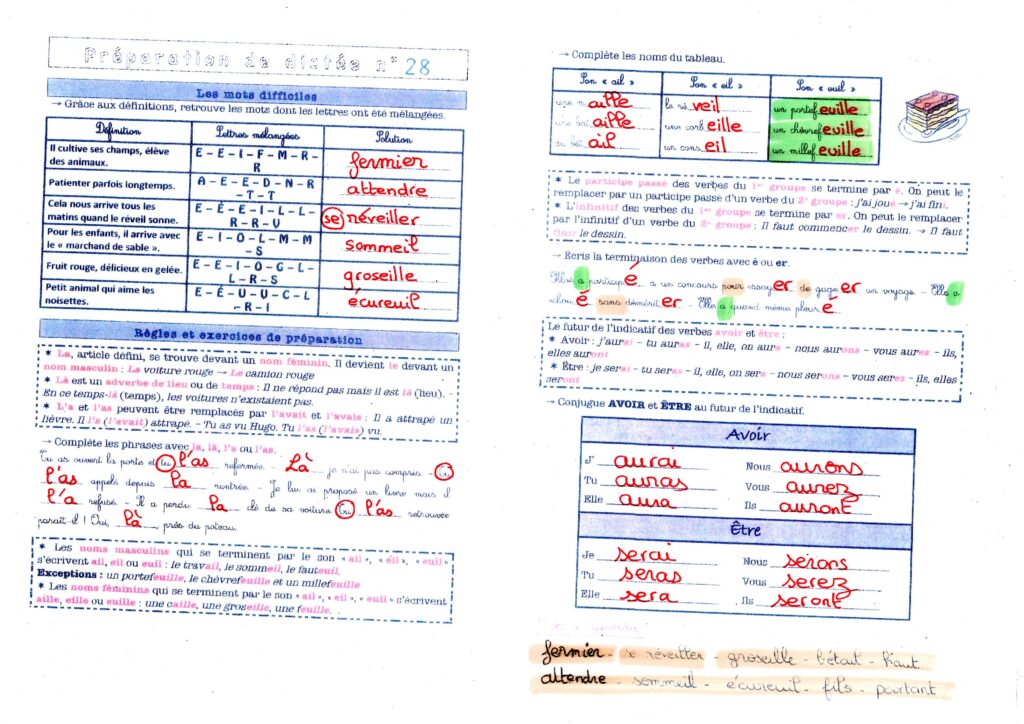 Préparation de dictée n° 28
Les mots difficiles
→ Grâce aux définitions, retrouve les mots dont les lettres ont été mélangées.
Définition Lettres mélangées Solution
Il cultive ses champs, élève des animaux. E – E – I – F – M – R – R fermier
Patienter parfois longtemps. A – E – E – D – N – R – T – T attendre
Cela nous arrive tous les matins quand le réveil sonne. E – É – E – I – L – L – R – R – V se réveiller
Pour les enfants, il arrive avec le « marchand de sable ». E – I – O – L – M – M – S sommeil
Fruit rouge, délicieux en gelée. E – E – I – O – G – L – L – R – S groseille
Petit animal qui aime les noisettes. E – É – U – U – C – L – R – I écureuil
Règles et exercices de préparation
* La, article défini, se trouve devant un nom féminin. Il devient le devant un
nom masculin : La voiture rouge → Le camion rouge
* Là est un adverbe de lieu ou de temps : Il ne répond pas mais il est là (lieu). –
En ce temps-là (temps), les voitures n'existaient pas.
* L'a et l'as peuvent être remplacés par l'avait et l'avais : Il a attrapé un
lièvre. Il l'a (l'avait) attrapé. – Tu as vu Hugo. Tu l'as (l'avais) vu.
→ Complète les phrases avec la, là, l'a ou l'as.
Tu as ouvert la porte et tu l'as refermée. – Là je n'ai pas compris. – Tu
l'as appelé depuis la rentrée. – Je lui ai proposé un livre mais il
l'a refusé. – Il a perdu la clé de sa voiture. Tu l'as retrouvée
paraît-il ! Oui, là, près du poteau.
* Les noms masculins qui se terminent par le son « ail », « eil », « euil »
s'écrivent ail, eil ou euil : le travail, le sommeil, le fauteuil.
Exceptions : un portefeuille, le chèvrefeuille et un millefeuille
* Les noms féminins qui se terminent par le son « ail », « eil », « euil » s'écrivent
aille, eille ou euille : une caille, une groseille, une feuille.
→ Complète les noms du tableau.
Son « ail » Son « eil » Son « euil »
une m aille le ré veil un portef euille
aille une corb eille un chèvref euille
ail un cons eil un millef euille
* Le participe passé des verbes du 1er groupe se termine par é. On peut le
remplacer par un participe passé d'un verbe du 2e groupe : j'ai joué → j'ai fini.
* L'infinitif des verbes du 1er groupe se termine par er. On peut le remplacer
par l'infinitif d'un verbe du 2e groupe : Il faut commencer le dessin. → Il faut
finir le dessin.
→ Écris la terminaison des verbes avec é ou er.
a particip é à un concours pour essay er de gagn er un voyage. – Elle a
échou é sans démérit er – Elle a quand même pleur é
Le futur de l'indicatif des verbes avoir et être :
* Avoir : j'aurai – tu auras – il, elle, on aura – nous aurons – vous aurez – ils,
elles auront
* Être : je serai – tu seras – il, elle, on sera – nous serons – vous serez – ils, elles
seront
→ Conjugue AVOIR et ÊTRE au futur de l'indicatif.
Avoir
J' aurai Nous aurons
Tu auras Vous aurez
Elle aura Ils auront
Être
Je serai Nous serons
Tu seras Vous serez
Elle sera Ils seront
fermier – se réveiller – groseille – bétail – haut
attendre – sommeil – écureuil – fils – pourtant